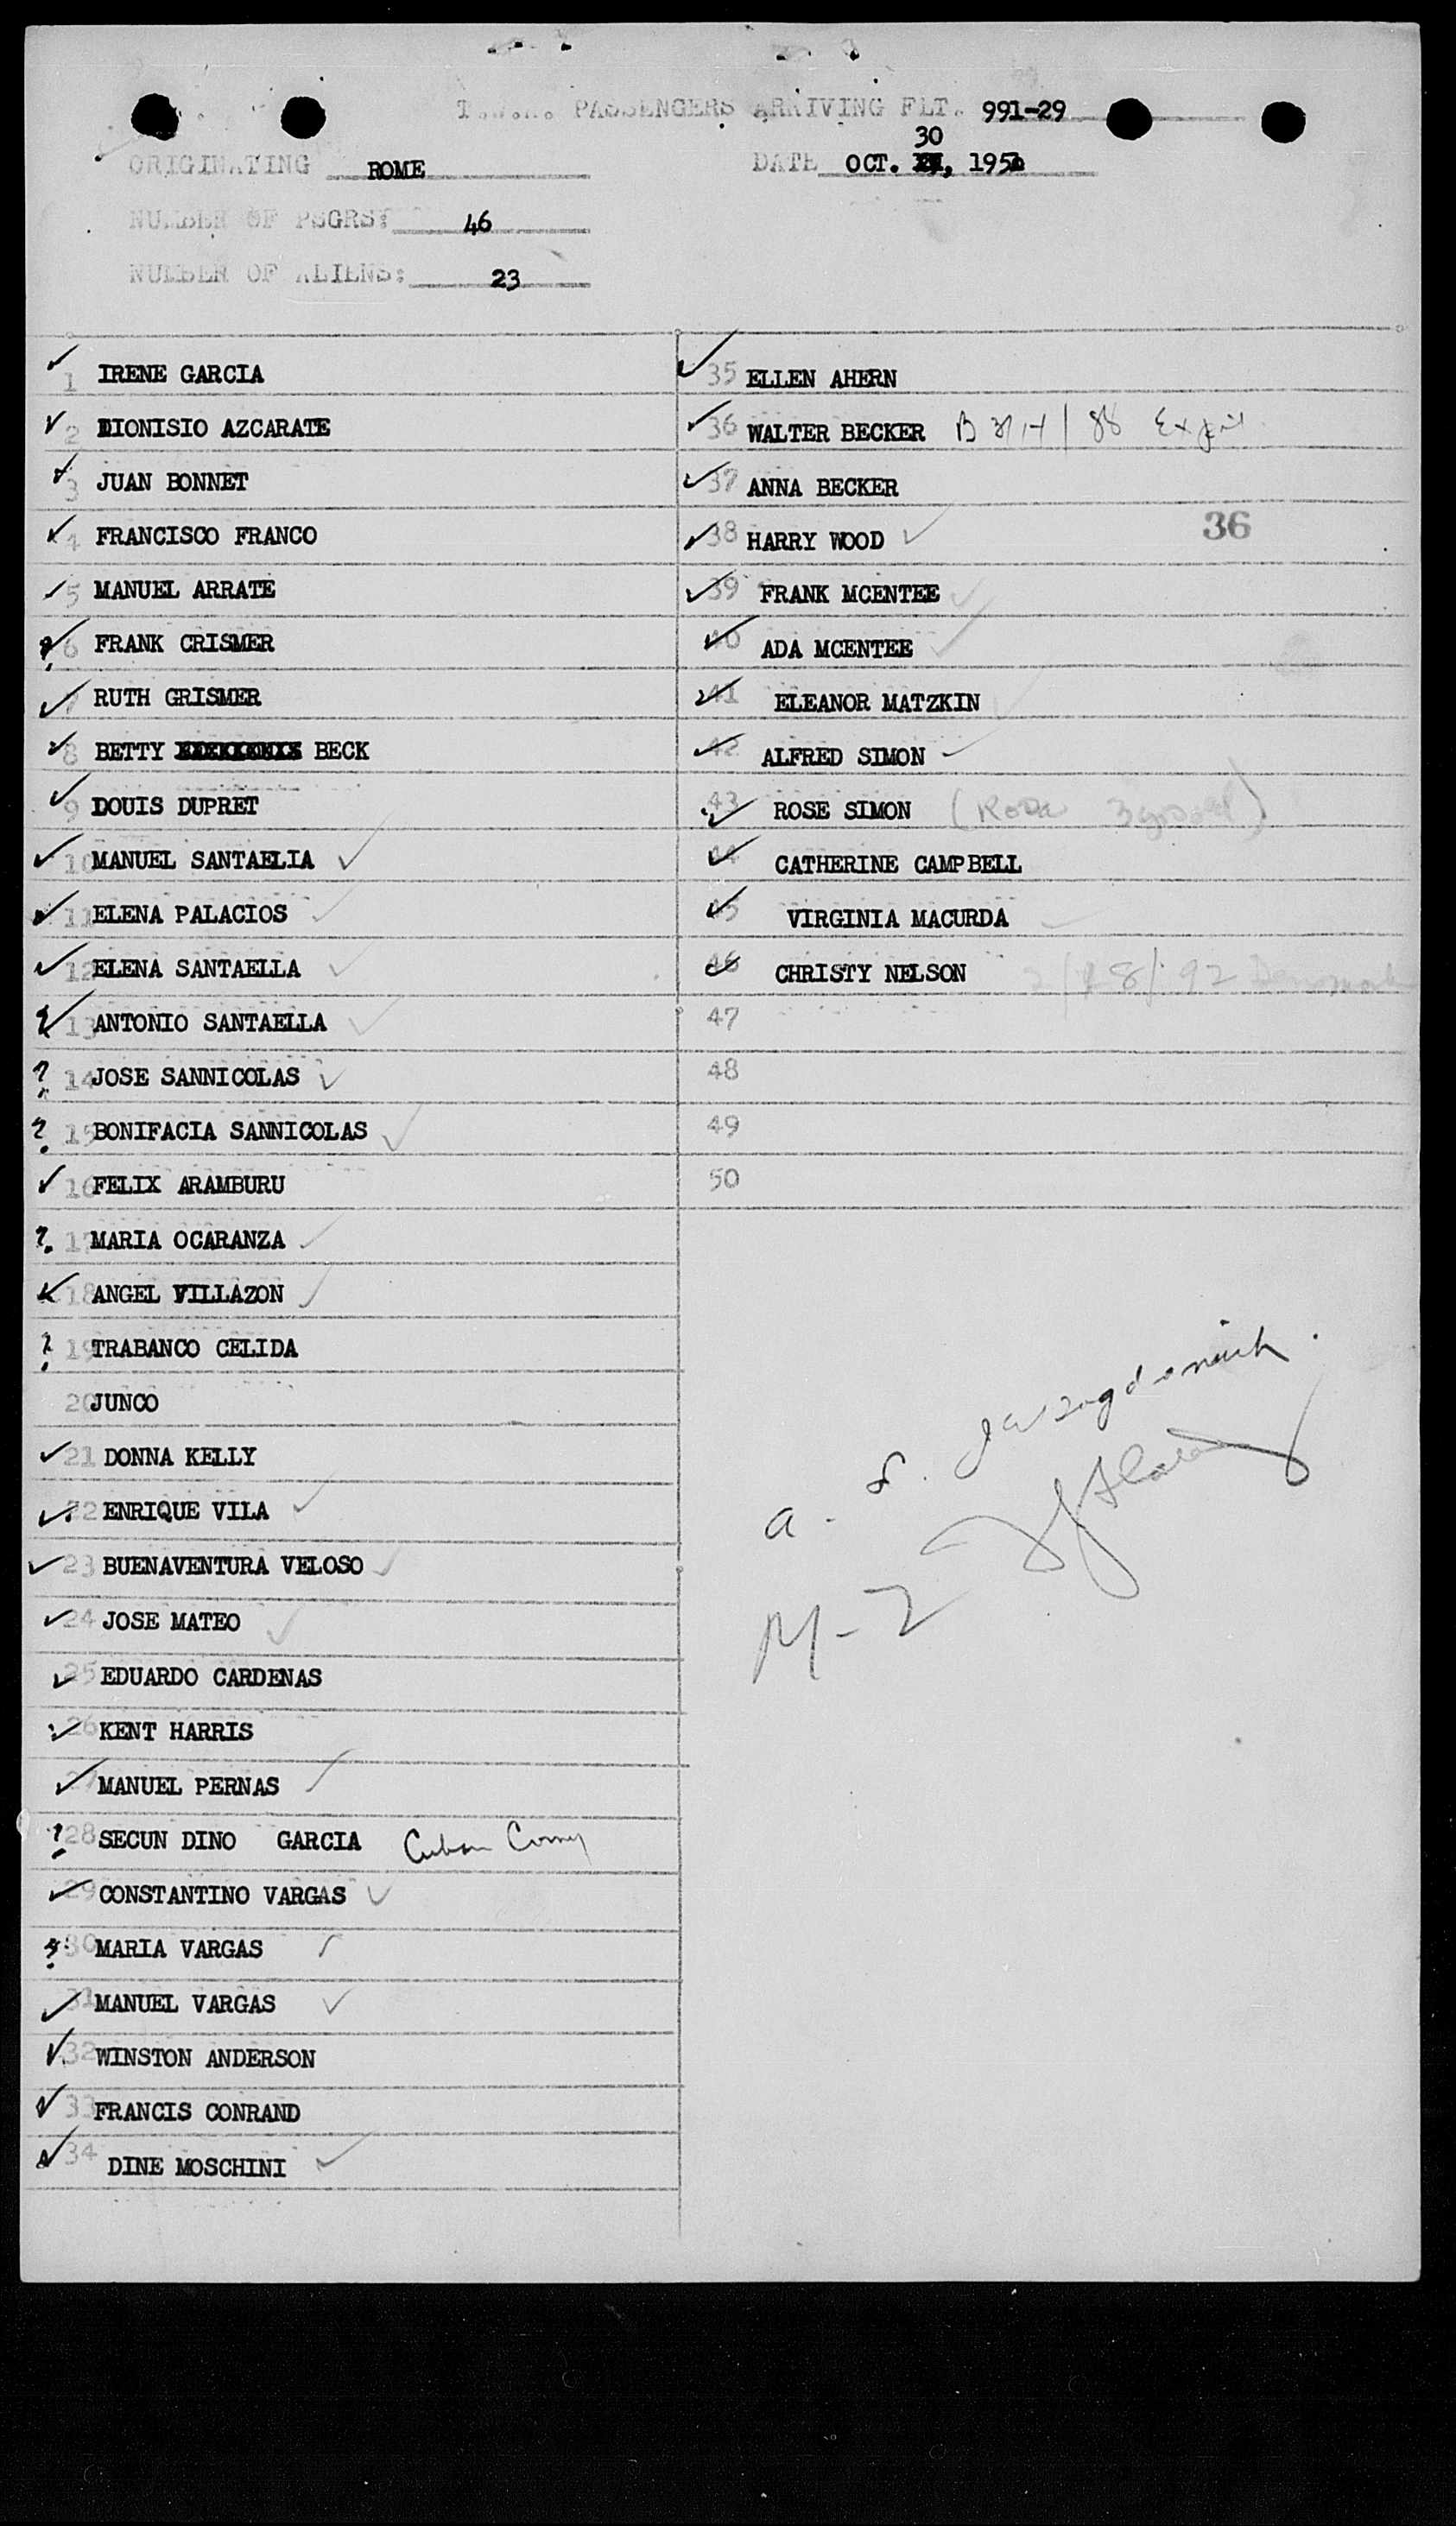 T.W.A. PASSENGERS ARRIVING FLT. 991-29
ORIGINATING ROME
DATE OCT. 30, 195
NUMBER OF PSGRS: 46
NUMBER OF ALIENS: 23
1 IRENE GARCIA
2 DIONISIO AZCARATE
3 JUAN BONNET
4 FRANCISCO FRANCO
5 MANUEL ARRATE
6 FRANK CRISMER
7 RUTH GRISMER
8 BETTY BECK
9 DOUIS DUPRET
10 MANUEL SANTAELIA
11 ELENA PALACIOS
12 ELENA SANTAELLA
13 ANTONIO SANTAELLA
? 14 JOSE SANNICOLAS
? 15 BONIFACIA SANNICOLAS
16 FELIX ARAMBURU
? 17 MARIA OCARANZA
18 ANGEL VILLAZON
? 19 TRABANCO CELIDA
20 JUNCO
21 DONNA KELLY
22 ENRIQUE VILA
23 BUENAVENTURA VELOSO
24 JOSE MATEO
25 EDUARDO CARDENAS
26 KENT HARRIS
27 MANUEL PERNAS
? 28 SECUN DINO GARCIA Cuban
29 CONSTANTINO VARGAS
30 MARIA VARGAS
31 MANUEL VARGAS
32 WINSTON ANDERSON
33 FRANCIS CONRAND
34 DINE MOSCHINI
35 ELLEN AHERN
36 WALTER BECKER
37 ANNA BECKER
38 HARRY WOOD
36
39 FRANK MCENTEE
40 ADA MCENTEE
41 ELEANOR MATZKIN
42 ALFRED SIMON
43 ROSE SIMON
44 CATHERINE CAMPBELL
45 VIRGINIA MACURDA
46 CHRISTY NELSON
47
48
49
50
M-2